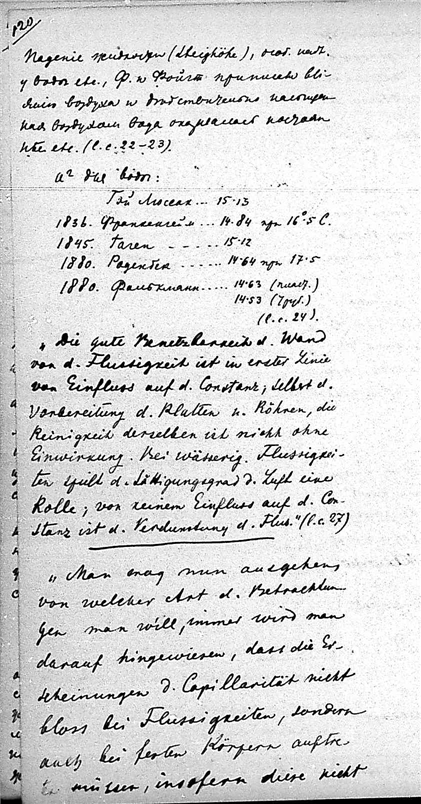 120
Паденіе жидкости (Steighöhe), особ. 
у воды etc., Ф. и Фойгт приписыв. вли-
янію воздуха и дѣйствительно насыщен-
ная воздухомъ вода оказывалась 
etc. (l.c. 22–23)
a² для воды:
Гэй Люссак... 15.13
1836. Франкенгейм... 14.84 при 16°.5 C.
1845. Гаген - - - - 15.12
1880. Роденбек - - - - - 14.64 при 17.5
1880. Фолькманн.... 14.63 (пласт.)
14.53 (Труб.)
(l.c. 24).
„Die gute Benetzbarkeit d. Wand
von d. Flussigkeit ist in erster Linie
von Einfluss auf d. Constanz; selbst d.
Vorbereitung d. Platten u. Röhren, die
Reinigkeit derselben ist nicht ohne
Einwirkung. Bei wässerig. Flussigkei-
ten spielt d. Sättigungsgrad d. Luft eine
Rolle; von keinem Einfluss auf d. Con-
stanz ist d. Verdunstung d. Flus." (l.c. 27)
„Man mag nun ausgehen
von welcher Art d. Betrachtun-
gen man will, immer wird man
darauf hingewiesen, dass die Er-
scheinungen d. Capillarität nicht
bloss bei Flussigkeiten, sondern
auch bei festen Körpern auftre-
ten müssen, insofern diese nicht